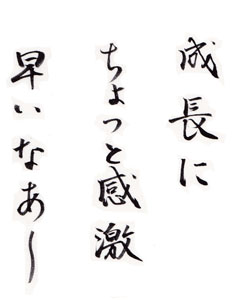 成長に
ちょっと感激
早いなあ〜